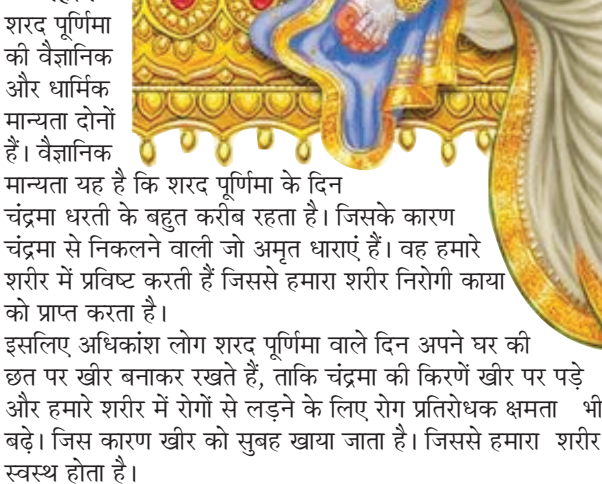 शरद पूर्णिमा
की वैज्ञानिक
और धार्मिक
मान्यता दोनों
हैं। वैज्ञानिक
मान्यता यह है कि शरद पूर्णिमा के दिन
चंद्रमा धरती के बहुत करीब रहता है। जिसके कारण
चंद्रमा से निकलने वाली जो अमृत धाराएं हैं। वह हमारे
शरीर में प्रविष्ट करती हैं जिससे हमारा शरीर निरोगी काया
को प्राप्त करता है।
इसलिए अधिकांश लोग शरद पूर्णिमा वाले दिन अपने घर की
छत पर खीर बनाकर रखते हैं, ताकि चंद्रमा की किरणें खीर पर पड़े
और हमारे शरीर में रोगों से लड़ने के लिए रोग प्रतिरोधक क्षमता भी
बढ़े। जिस कारण खीर को सुबह खाया जाता है। जिससे हमारा शरीर
स्वस्थ होता है।